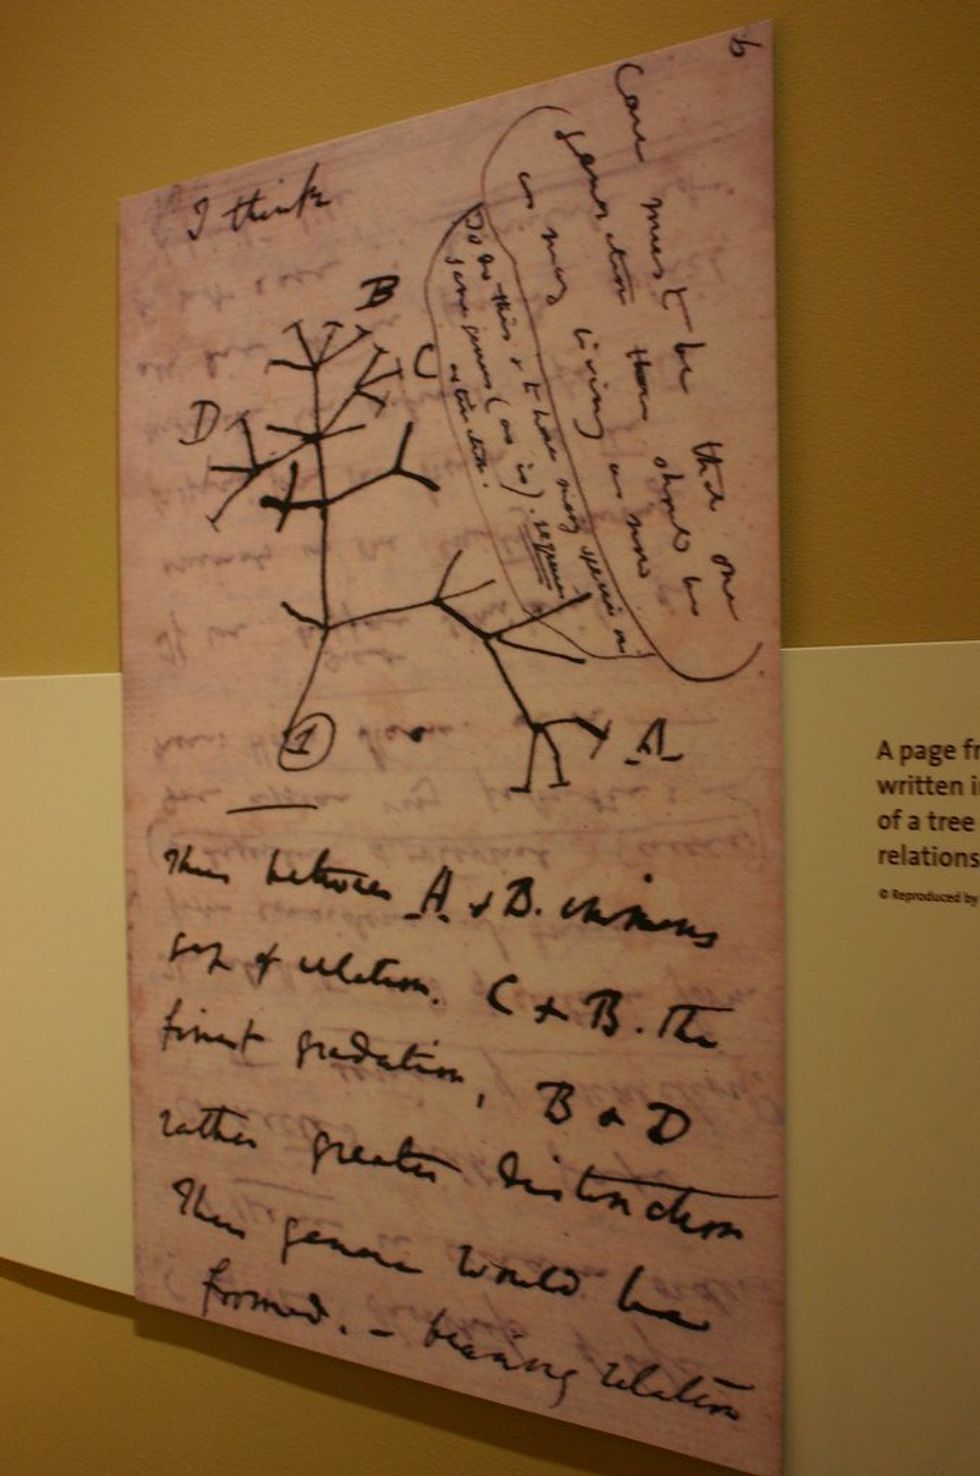 I think
B
C
D
A
1
Case must be that one
generation then should be
as many living as now
To do this & to have many species in
same genus (as is). requires
extinction.
Thus between A & B. immense
gap of relation. C & B. The
finest gradation, B & D
rather greater distinction
Thus genera would be
formed. — bearing relation
A page fr
written i
of a tree
relations
© Reproduced by